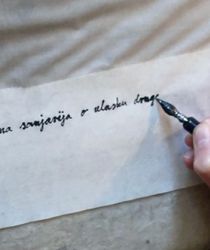 na sanjarija o ulasku druge